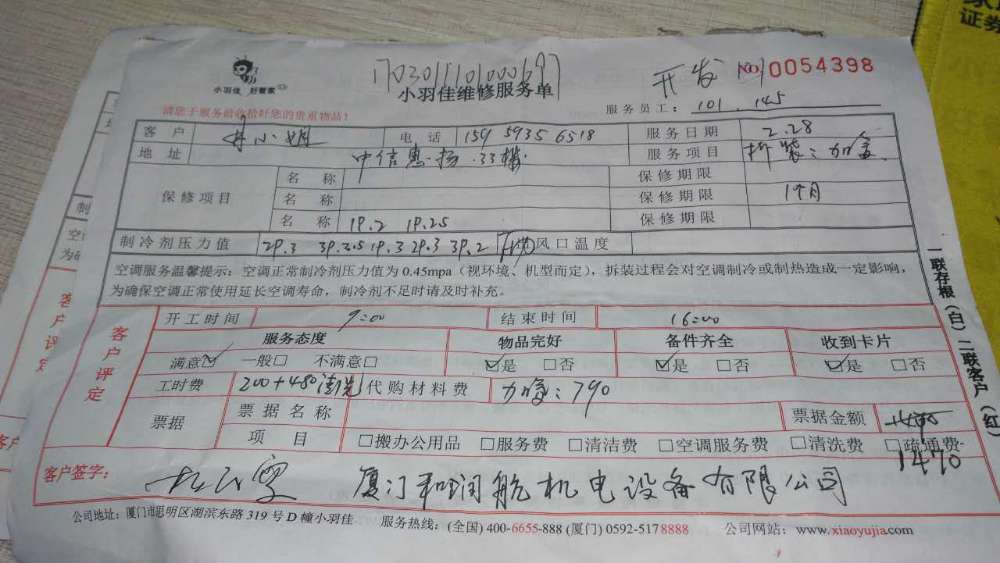 证券
小羽佳 好管家
1703011101000697
开发 NO 0054398
小羽佳维修服务单
请您于服务前收拾好您的贵重物品!
服务员工: 101 . 145
客户 小姐 电话 159 5935 6518 服务日期 2.28
地址 中信惠扬 33楼 服务项目 拆装:加氟
保修项目 名称 保修期限
名称 保修期限 1个月
名称 1P.2 1P.25 保修期限
制冷剂压力值 2P.3 3P.3.5 1P.3 2P.3 3P.2 风口温度
空调服务温馨提示:空调正常制冷剂压力值为0.45mpa(视环境、机型而定),拆装过程会对空调制冷或制热造成一定影响,
为确保空调正常使用延长空调寿命,制冷剂不足时请及时补充。
客户评定
开工时间 9:00 结束时间 16:00
服务态度 物品完好 备件齐全 收到卡片
满意☑ 一般□ 不满意□ ☑是 □否 ☑是 □否 ☑是 □否
工时费 200+480清洗 代购材料费 加氟:790
票据 票据名称 票据金额
项目 □搬办公用品 □服务费 □清洁费 □空调服务费 □清洗费 □疏通费
1470
客户签字: 厦门和润航机电设备有限公司
公司地址:厦门市思明区湖滨东路319号D幢小羽佳 服务热线:(全国)400-6655-888 (厦门)0592-5178888 公司网站:www.xiaoyujia.com
一联存根(白) 二联客户(红)